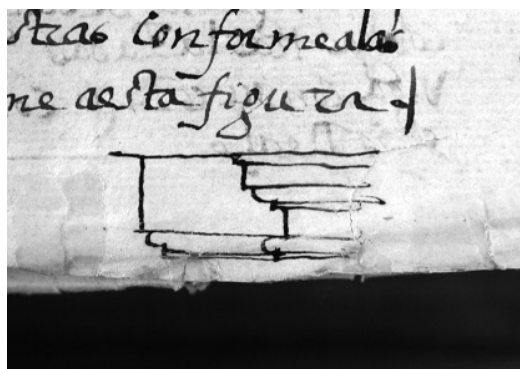 stras conformealas
me aesta figura